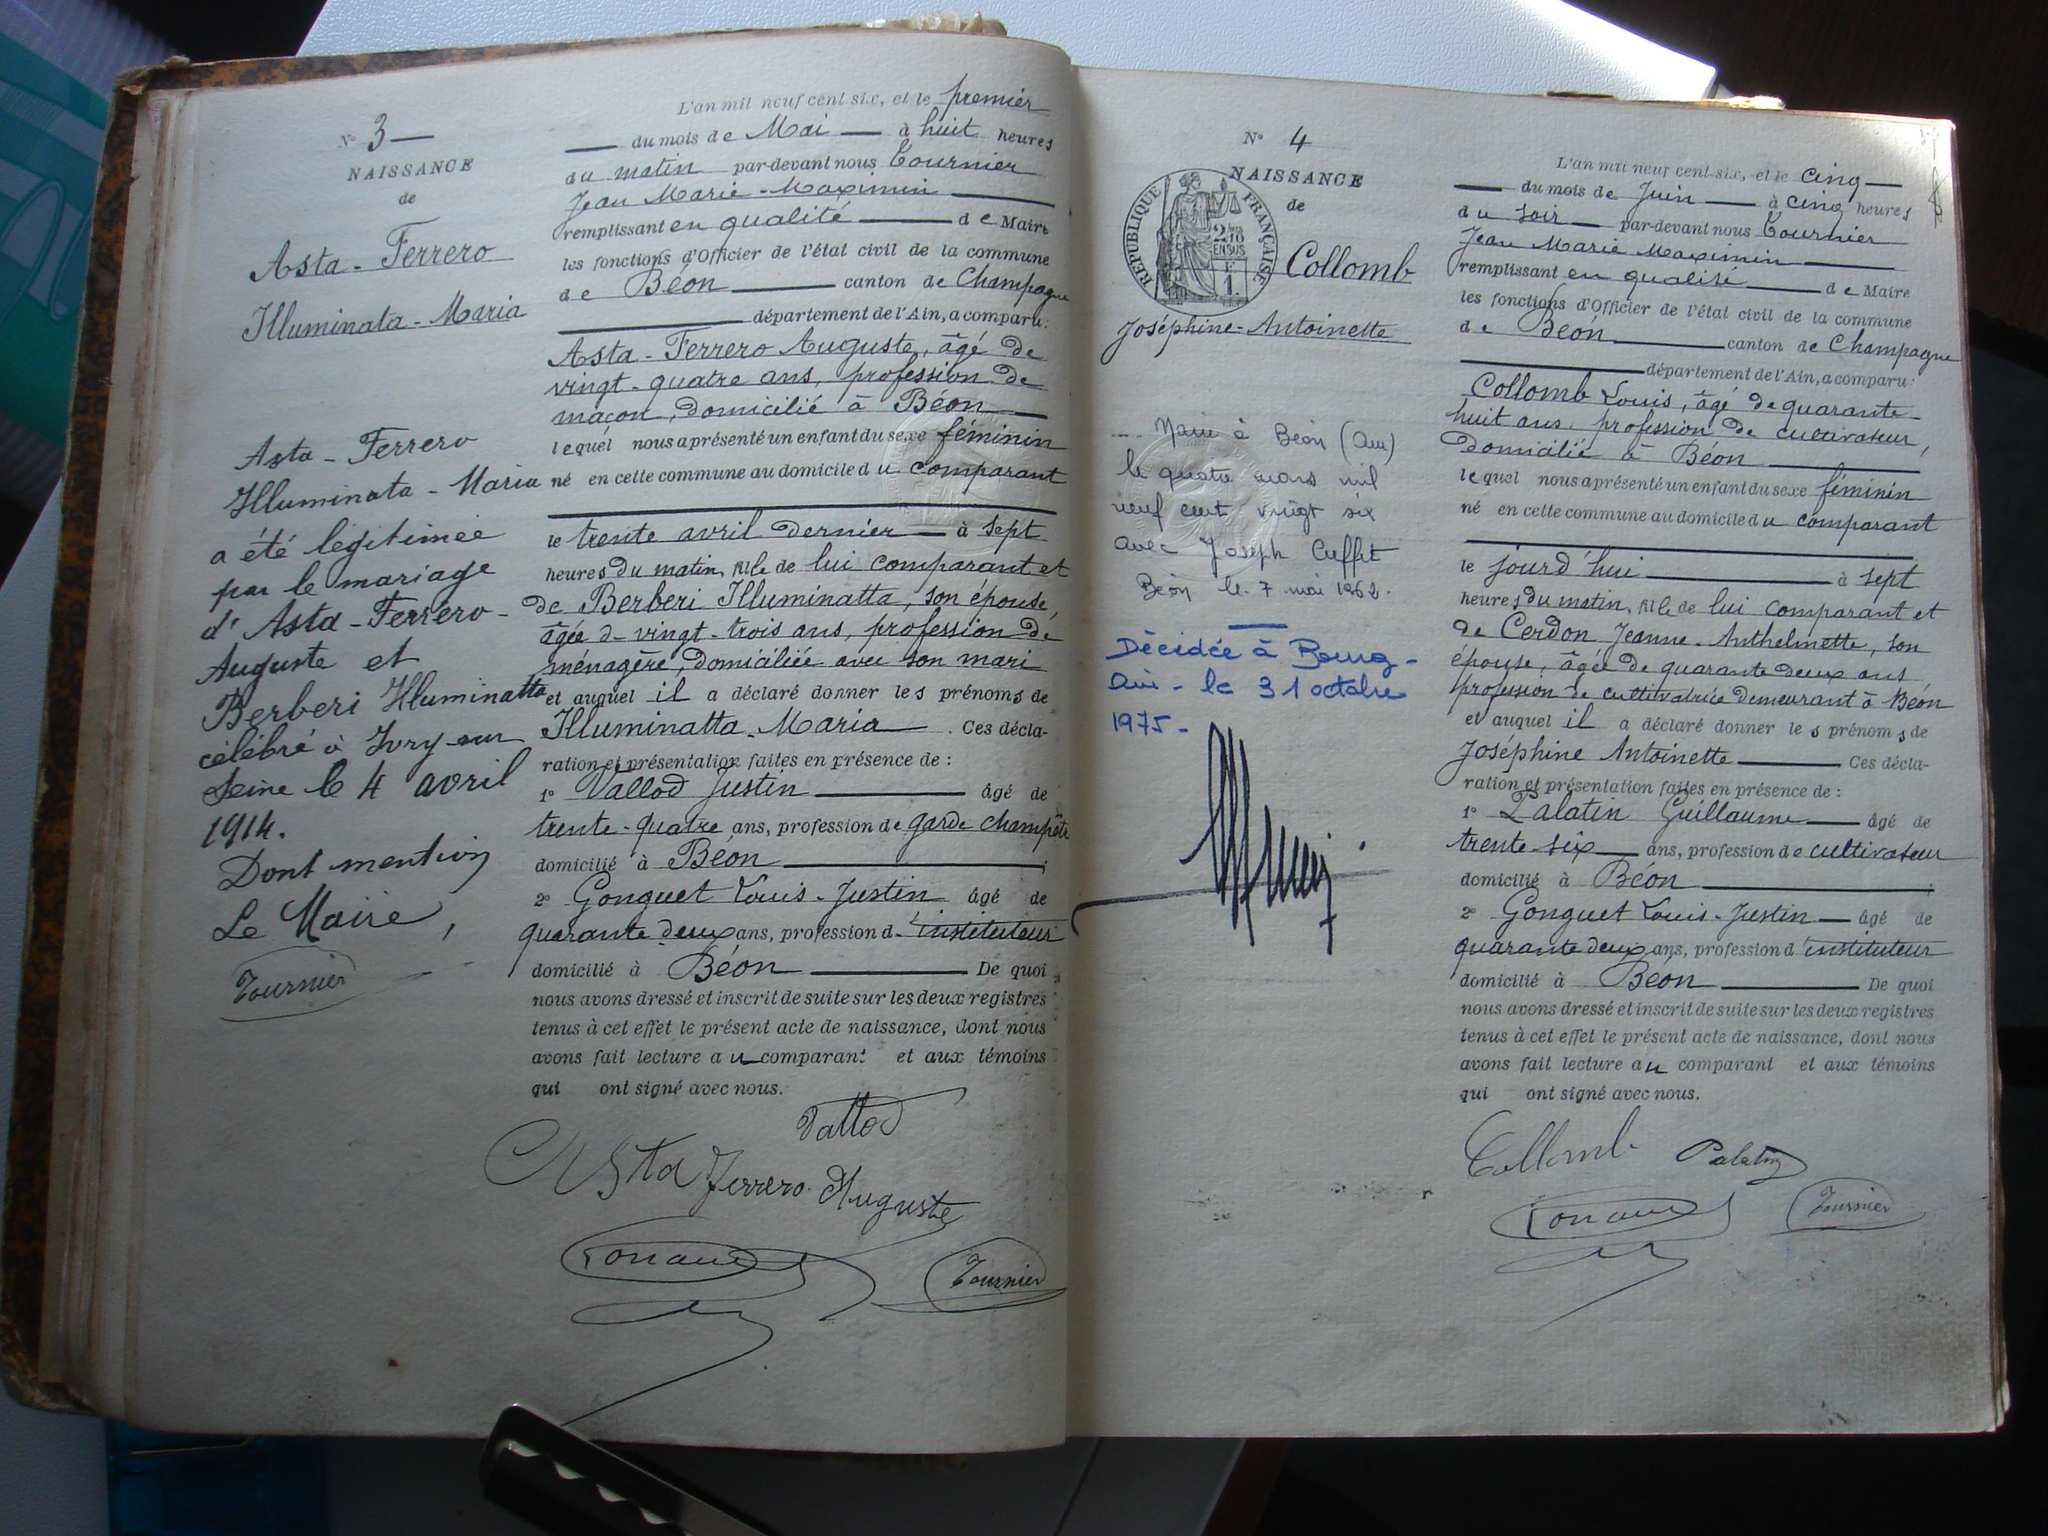 N° 3
NAISSANCE
de
Asta-Ferrero
Illuminata-Maria
Asta-Ferrero
Illuminata-Maria
a été légitimée
par le mariage
d'Asta-Ferrero-
Auguste et
Berberi Illuminatta
célébré à Ivry-sur
Seine le 4 avril
1914.
Dont mention
Le Maire,
Tournier
L'an mil neuf cent six, et le premier
du mois de Mai à huit heures
du matin par-devant nous Tournier
Jean Marie-Maximin
remplissant en qualité de Maire
les fonctions d'Officier de l'état civil de la commune
de Béon canton de Champagne
département de l'Ain, a comparu:
Asta-Ferrero Auguste, âgé de
vingt-quatre ans, profession de
maçon, domicilié à Béon
lequel nous a présenté un enfant du sexe féminin
né en cette commune au domicile du comparant
le trente avril dernier à sept
heures du matin, fille de lui comparant et
de Berberi Illuminatta, son épouse,
âgée d-vingt-trois ans, profession de
ménagère, domiciliée avec son mari
et auquel il a déclaré donner les prénoms de
Illuminatta-Maria. Ces décla-
ration et présentation faites en présence de :
1° Vallod Justin âgé de
trente-quatre ans, profession de garde champêtre
domicilié à Béon ;
2° Gonguet Louis-Justin âgé de
quarante deux ans, profession d'instituteur
domicilié à Béon De quoi
nous avons dressé et inscrit de suite sur les deux registres
tenus à cet effet le présent acte de naissance, dont nous
avons fait lecture au comparant et aux témoins
qui ont signé avec nous.
Vallod
Asta Ferrero Auguste
Tournier
N° 4
NAISSANCE
de
RÉPUBLIQUE FRANÇAISE
2/10
EN SUS
Collomb
Joséphine-Antoinette
Mariée à Béon (Ain)
le quatre mars mil
neuf cent vingt six
avec Joseph Cuffet
Béon le 7 mai 1962.
Décédée à Bourg-
Ain - le 31 octobre
1975-
L'an mil neuf cent-six, et le cinq
du mois de Juin à cinq heures
du soir par-devant nous Tournier
Jean Marie Maximin
remplissant en qualité de Maire
les fonctions d'Officier de l'état civil de la commune
de Béon canton de Champagne
département de l'Ain, a comparu:
Collomb Louis, âgé de quarante-
huit ans, profession de cultivateur,
domicilié à Béon
lequel nous a présenté un enfant du sexe féminin
né en cette commune au domicile du comparant
le jourd'hui à sept
heures du matin, fille de lui comparant et
de Cerdon Jeanne-Anthelmette, son
épouse, âgée de quarante deux ans,
profession de cultivatrice demeurant à Béon
et auquel il a déclaré donner les prénoms de
Joséphine Antoinette Ces décla-
ration et présentation faites en présence de :
1° Palatin Guillaume âgé de
trente-six ans, profession de cultivateur
domicilié à Béon ;
2° Gonguet Louis-Justin âgé de
quarante deux ans, profession d'instituteur
domicilié à Béon De quoi
nous avons dressé et inscrit de suite sur les deux registres
tenus à cet effet le présent acte de naissance, dont nous
avons fait lecture au comparant et aux témoins
qui ont signé avec nous.
Collomb Palatin
Tournier